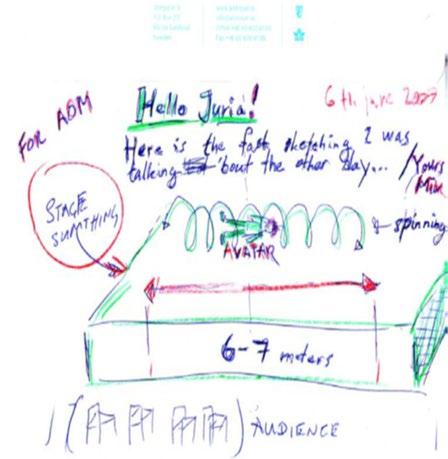 FOR ABM
Hello Juria!
Here is the fast sketching I was
talking 'bout the other day...
/Yours
Mik
STAGE
SUMTHING
AVATAR
spinning
6-7 meters
AUDIENCE